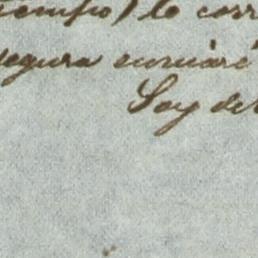 tiempo) lo corr
segura enviaré
Soy de